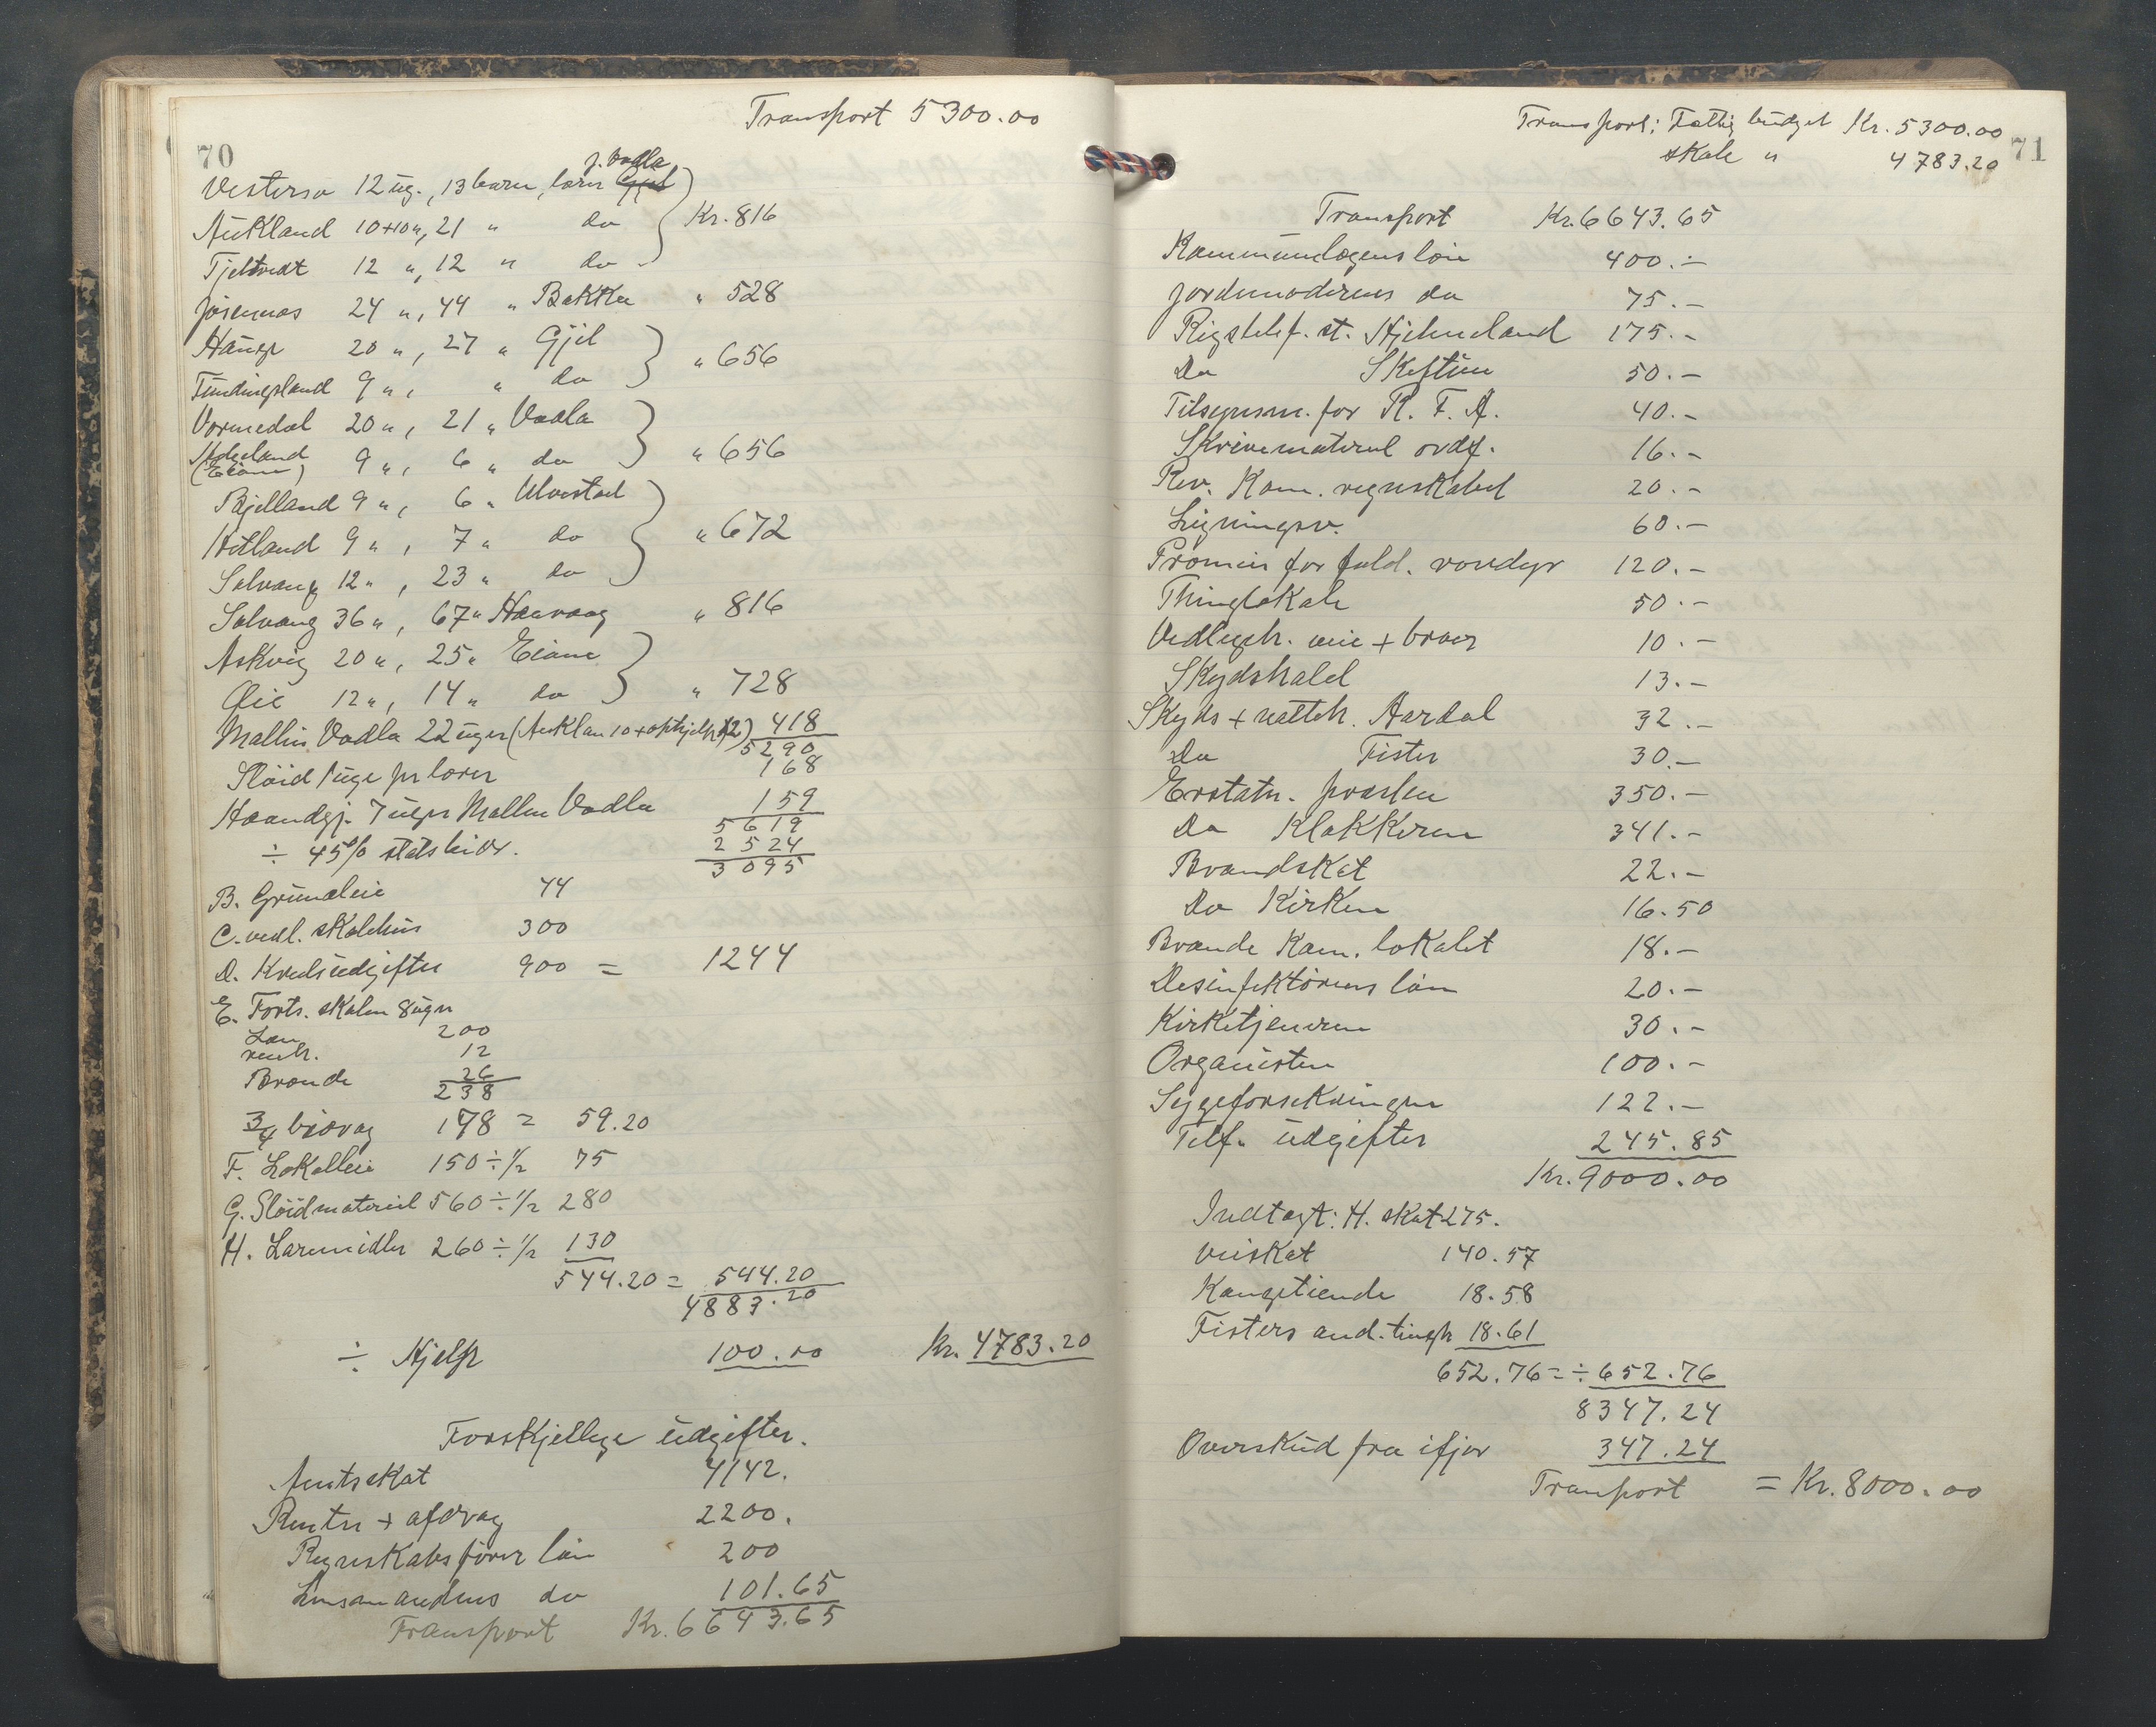 Transport 5300.00
70
J. Vadla
Vestersø 12 ug., 13 barn, lærer Gjil
Aukland 10+10 ", 21 " do Kr. 816
Tjeltvedt 12 ", 12 " do
Jøsenøs 24 ", 44 " Bakka " 528
Hauge 20 ", 27 " Gjil
Tundingsland 9 ", " do " 656
Vormedal 20 ", 21 " Vadla
(Eiane) 9 ", 6 " do " 656
Bjelland 9 ", 6 " Ulvestad
Hetland 9 ", 7 " do " 672
Solvang 12 ", 23 " do
Solvang 36 ", 67 " Haavaag " 816
Askvig 20 ", 25 " Eiane
Øie 12 ", 14 " do " 728
Mallin Vadla 22 uger (Auklan 10 + ophjelp 12) 418
5290
Slöid 1 uge pr lærer 168
Haandgj. 7 uger Mallin Vadla 159
5619
÷ 45% statsbidr. 2524
3095
B. Grundleie 44
C. vedl. skolehus 300
D. Kredsudgifter 900 = 1244
E. Forts. skolen 8 uger
Løn 200
renh. 12
Brænde 26
238
3/4 bidrag 178 = 59.20
F. Lokalleie 150 ÷ 1/2 75
G. Slöidmateriel 560 ÷ 1/2 280
H. Læremidler 260 ÷ 1/2 130
544.20 = 544.20
4883.20
÷ Hjelp 100.00 Kr. 4783.20
Forskjellige udgifter.
Amtsskat 4142.
Renter + afdrag 2200.
Regnskabsfører løn 200
Lensmandens do 101.65
Transport Kr. 6643.65
Transport: Fattig budget Kr. 5300.00
71
skole " 4783.20
Transport Kr. 6643.65
Kommunelægens løn 400.-
Jordemoderens do 75.-
Rigstelef. st. Hjelmeland 175.-
Do Skiftun 50.-
Tilsynsm. for R. F. A. 40.-
Skrivemateriel ordf. 16.-
Rev. Kom. regnskabet 20.-
Ligningsv. 60.-
Præmier for fæld. rovdyr 120.-
Thinglokale 50.-
Vedligeh. veie + broer 10.-
Skydshald 13.-
Skyds + natteh. Aardal 32.-
Do Fister 30.-
Erstatn. præsten 350.-
Do Klokkeren 341.-
Brandskat 22.-
Do Kirken 16.50
Brænde Kom. lokalet 18.-
Desinfektørens løn 20.-
Kirketjeneren 30.-
Organisten 100.-
Sygeforsekringen 122.-
Telf. udgifter 245.85
Kr. 9000.00
Indtægt: H. skat 275.
Veiskat 140.57
Kongetiende 18.58
Fisters and. tingh 18.61
652.76 = ÷ 652.76
8347.24
Overskud fra ifjor 347.24
Transport = Kr. 8000.00